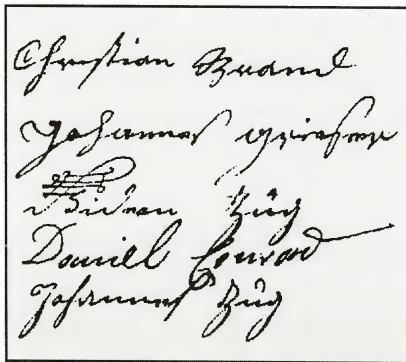 Christian Brand
Johannes Grieser
Gideon Züg
Daniel Conrad
Johannes Züg